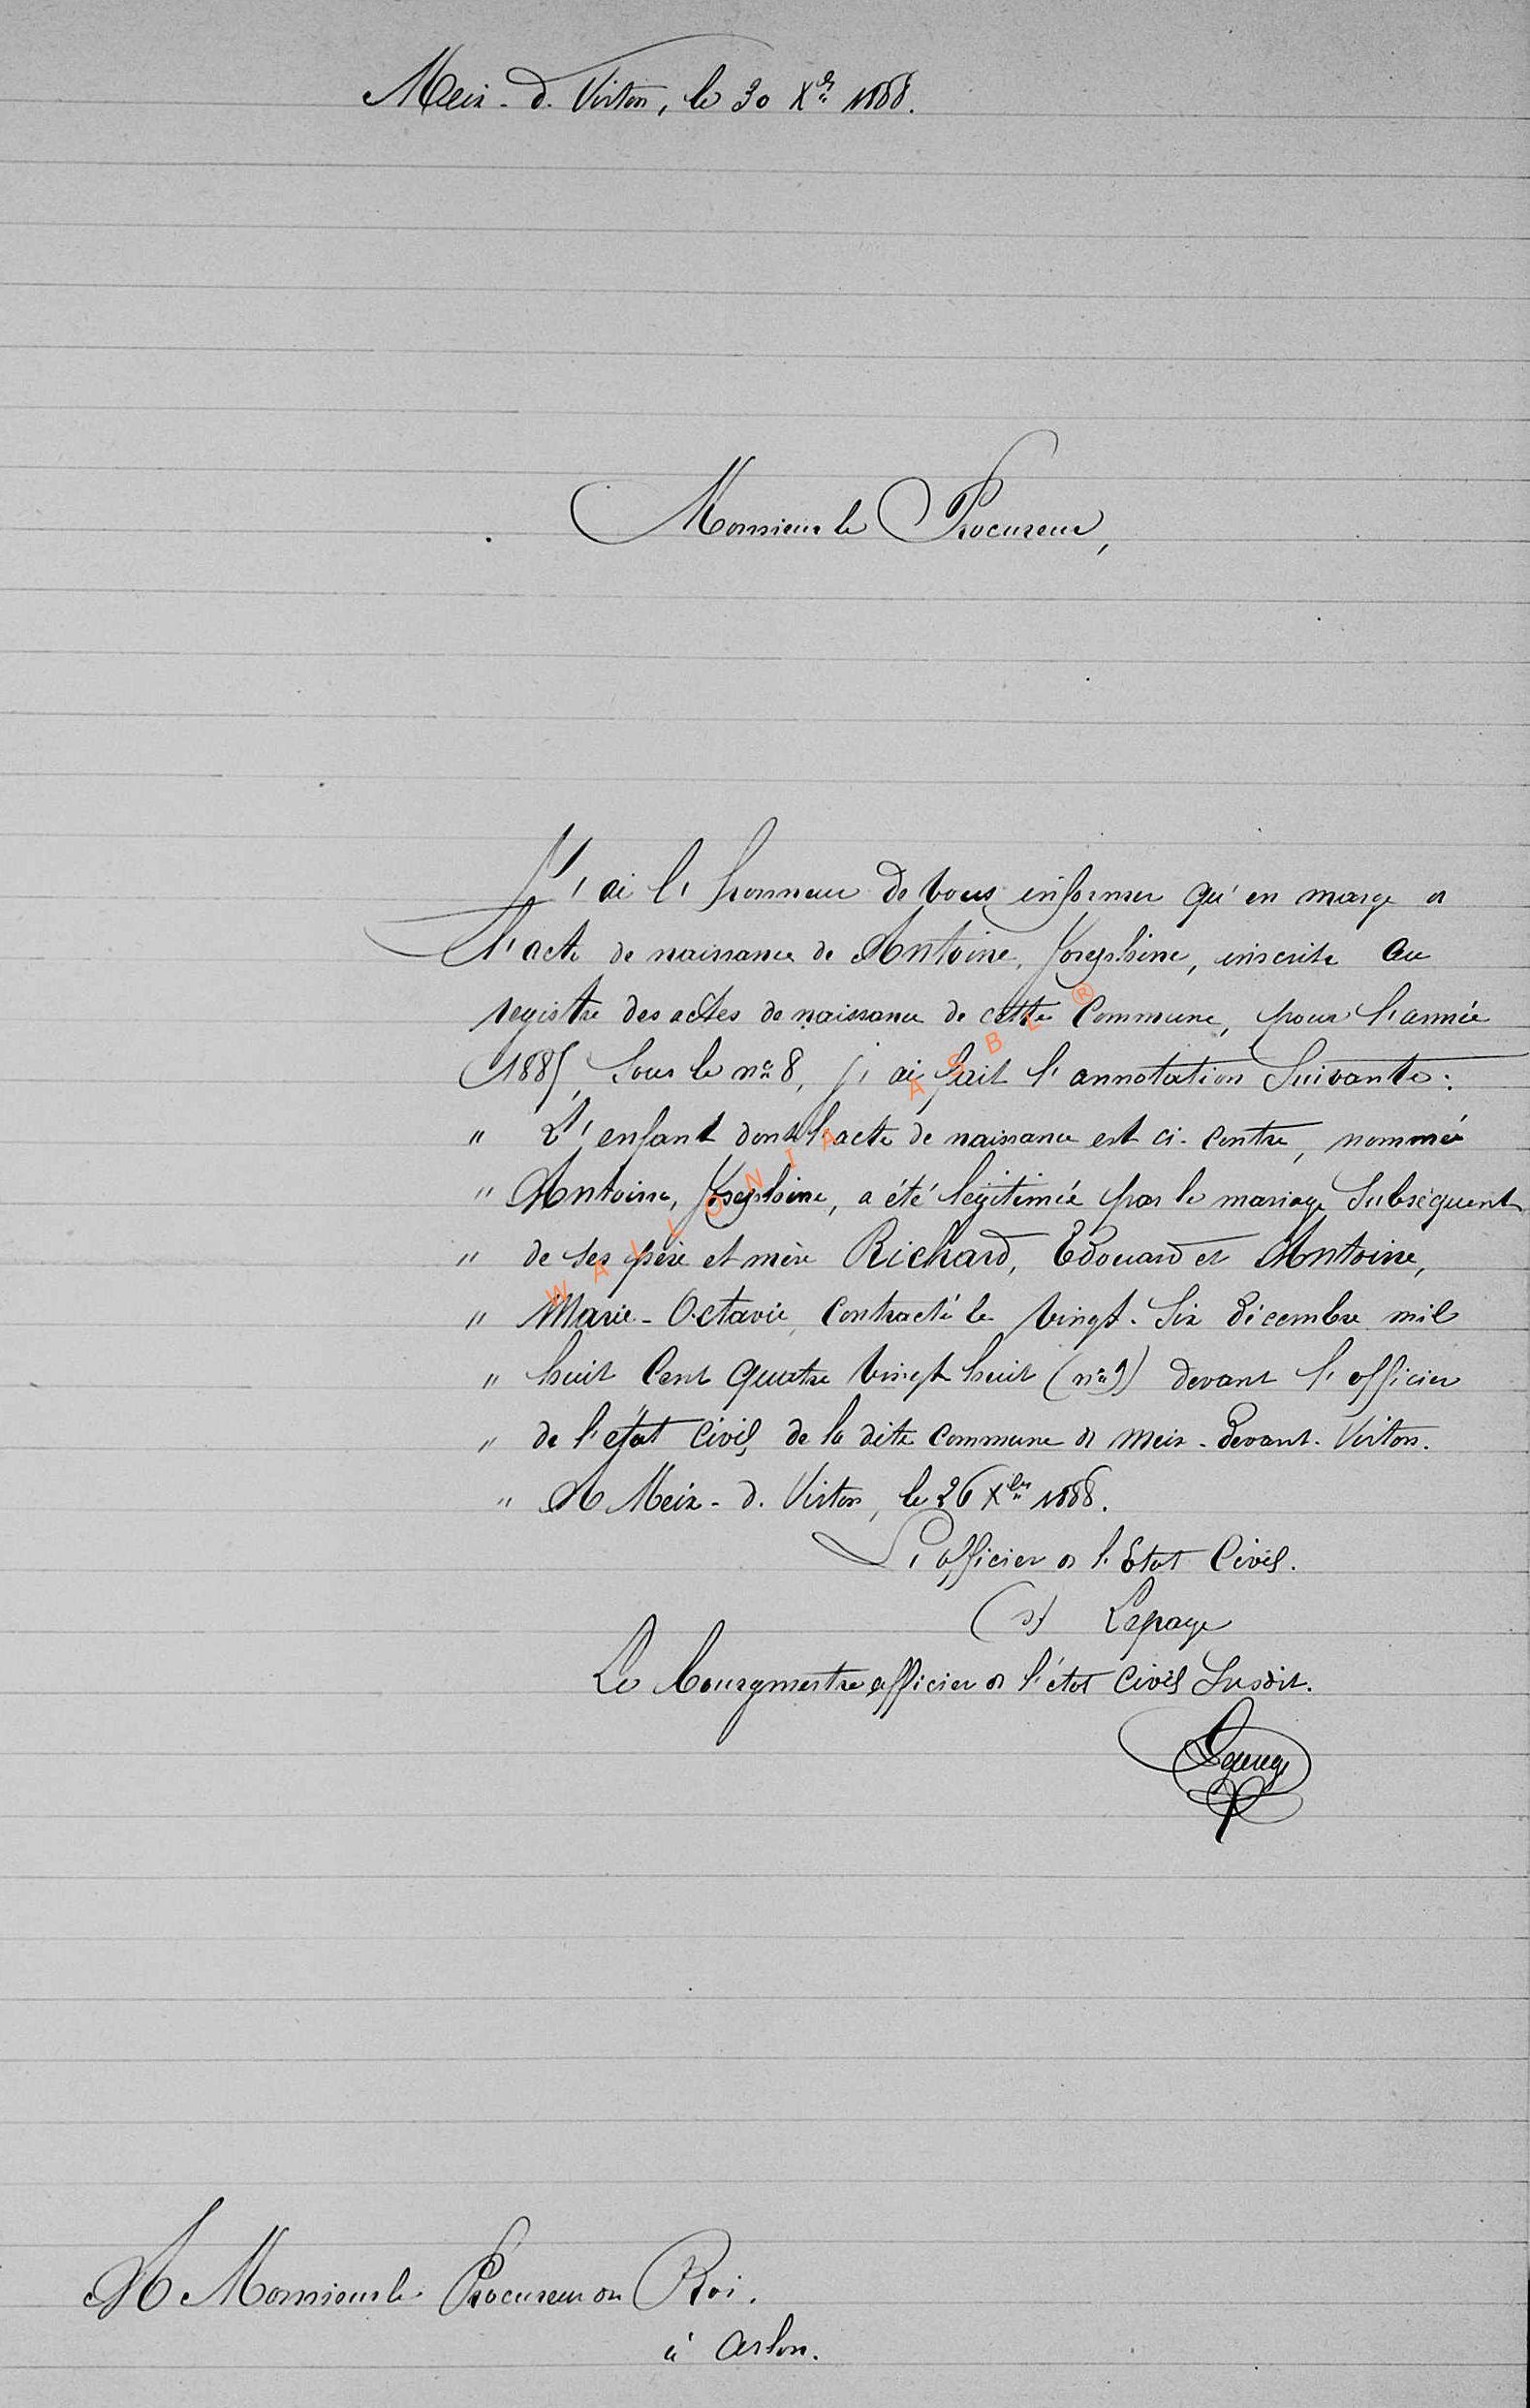 Meix-d. Virton, le 30 Xbre 1888.
Monsieur le Procureur,
J'ai l'honneur de vous informer qu'en marge de
l'acte de naissance de Antoine, Josephine, inscrite au
registre des actes de naissance de cette Commune, pour l'année
1885, sous le n° 8, j'ai fait l'annotation suivante:
" L'enfant dont l'acte de naissance est ci-contre, nommée
" Antoine, Josephine, a été légitimée par le mariage subséquent
" de ses père et mère Richard, Edouard et Antoine,
" Marie-Octavie, contracté le vingt-six décembre mil
" huit cent quatre vingt huit (n° 9) devant l'officier
" de l'état civil de la dite commune de Meix-devant-Virton.
" A Meix-d. Virton, le 26 Xbre 1888.
L'officier de l'Etat Civil.
(s) Lepage
Le bourgmestre officier de l'état civil susdit.
Lepage
A Monsieur le Procureur du Roi.
à Arlon.
WALLONIA ASBL ®